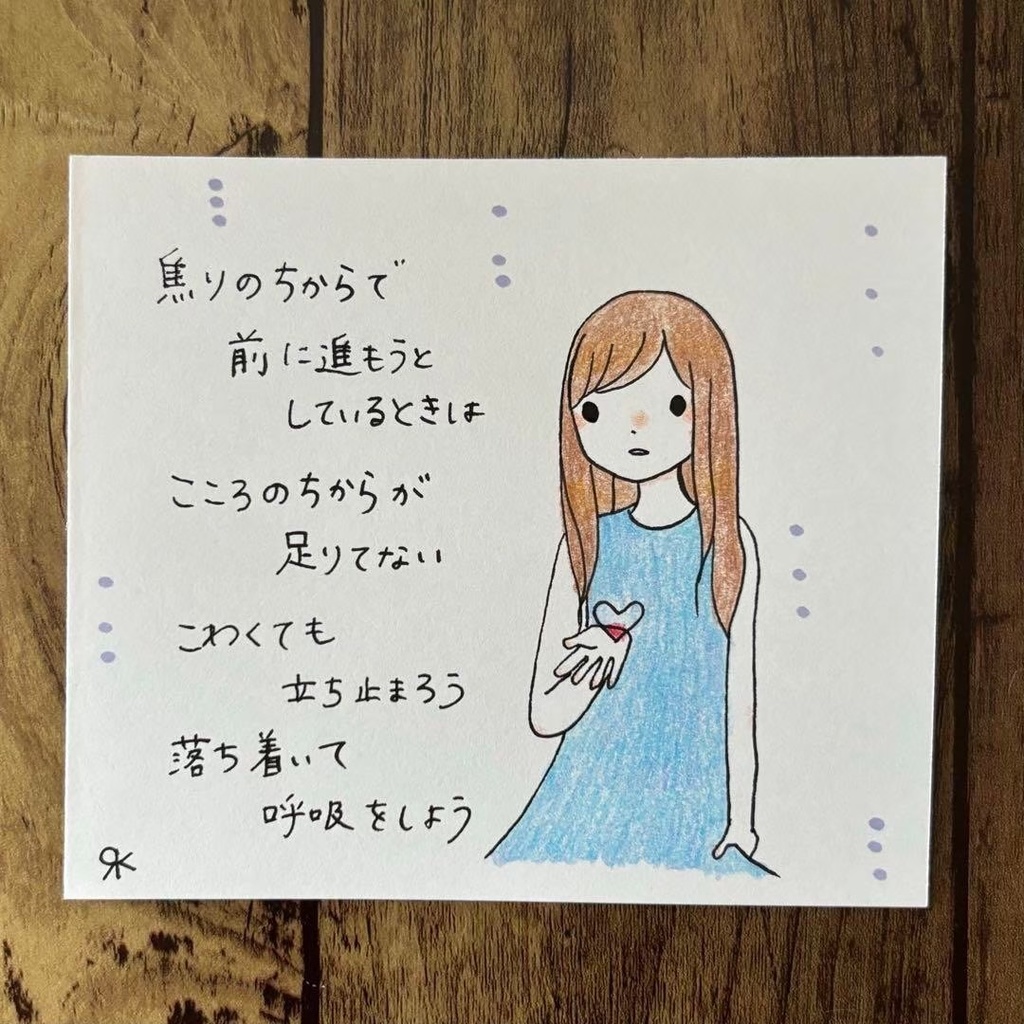 焦りのちからで
前に進もうと
しているときは
こころのちからが
足りてない
こわくても
立ち止まろう
落ち着いて
呼吸をしよう